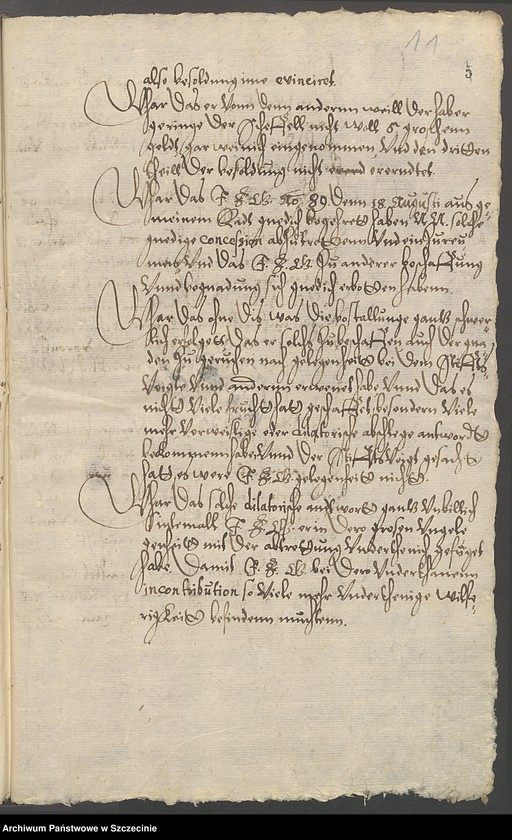 11
5
also besoldung ime evinciret.
Whar das er vonn denn anderen weill der haber
geringe der scheffell nicht woll 6 groschenn
geldt gar weinich eingenommen, vnd den dritten
theill der besoldung nicht ererndtet
Whar das E. F. G. Ao. 89 denn 18 Augusti aus ge-
meinem Radt gnedich begehret haben solche
gnedige concession abzutretenn vnd
vnd das E. F. G. zu anderer beschaffung
vnnd begnadung sich gnedich erbotten habenn.
Whar das ohne dis was die bestallunge gantz schwer-
lich erfolget, das er solchs zubeschaffen auf der gna-
den zu geruchen nach gelegenheit bei dem Stiffts-
Voigte vnnd anderenn erwenet habe vnnd das es
nicht viele frucht hatt geschaffet, besondern viele
mehr vorweislige oder dilatorische abschlege antwordt
bekommenn habe, vnnd der StifftsVoigt gesacht
hatt es were E. F. G. gelegenheit nicht.
Whar das solche dilatorische antwort gantz vnbillich
Sintemall E. F. G. er in dero grosen vngele-
genheit mit der abtrettung vnderthenich gefuget
habe, damit E. F. G. bei dero vnderthanenn
in contribution so viele mehr vnderthenige wilfe-
rigkeit befindenn muchtenn.
Archiwum Państwowe w Szczecinie